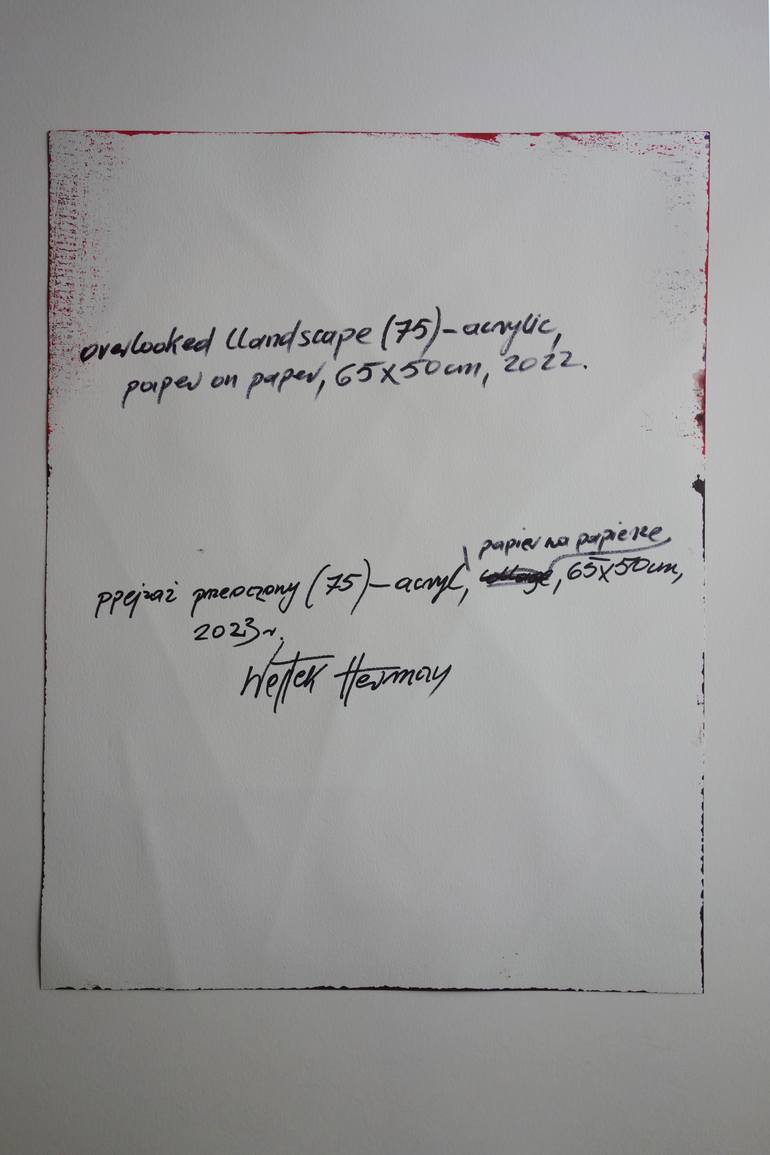 overlooked llandscape (75) - acrylic,
paper on paper, 65x50cm, 2022.
papier na papierze
ppejzaż przeoczony (75) - acryl, collage, 65x50cm,
2023r.
Wojtek Herman